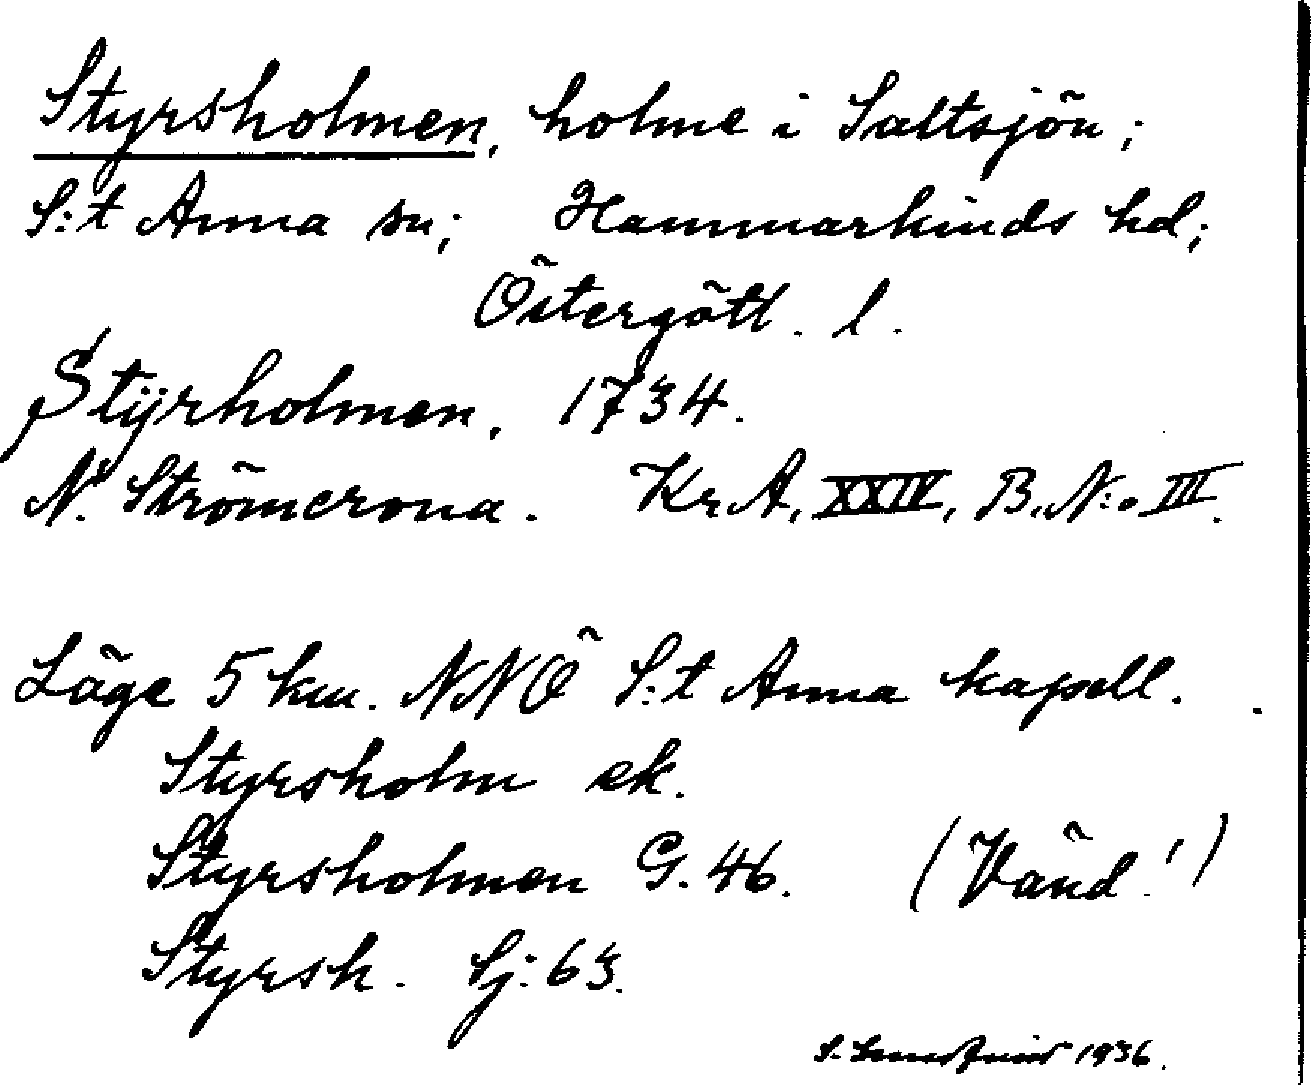 Styrsholmen, holme i Saltsjön;
S:t Anna sn; Hammarkinds hd;
Östergötl. l.
Stÿrholmen, 1734.
N. Strömcrona. Kr. A, XXIV, B. N:o III.
Läge 5 km. NNÖ S:t Anna kapell.
Styrsholm ek.
Styrsholmen G. 46. (Vänd!)
Styrsh. Sj: 63.
S. 1936.